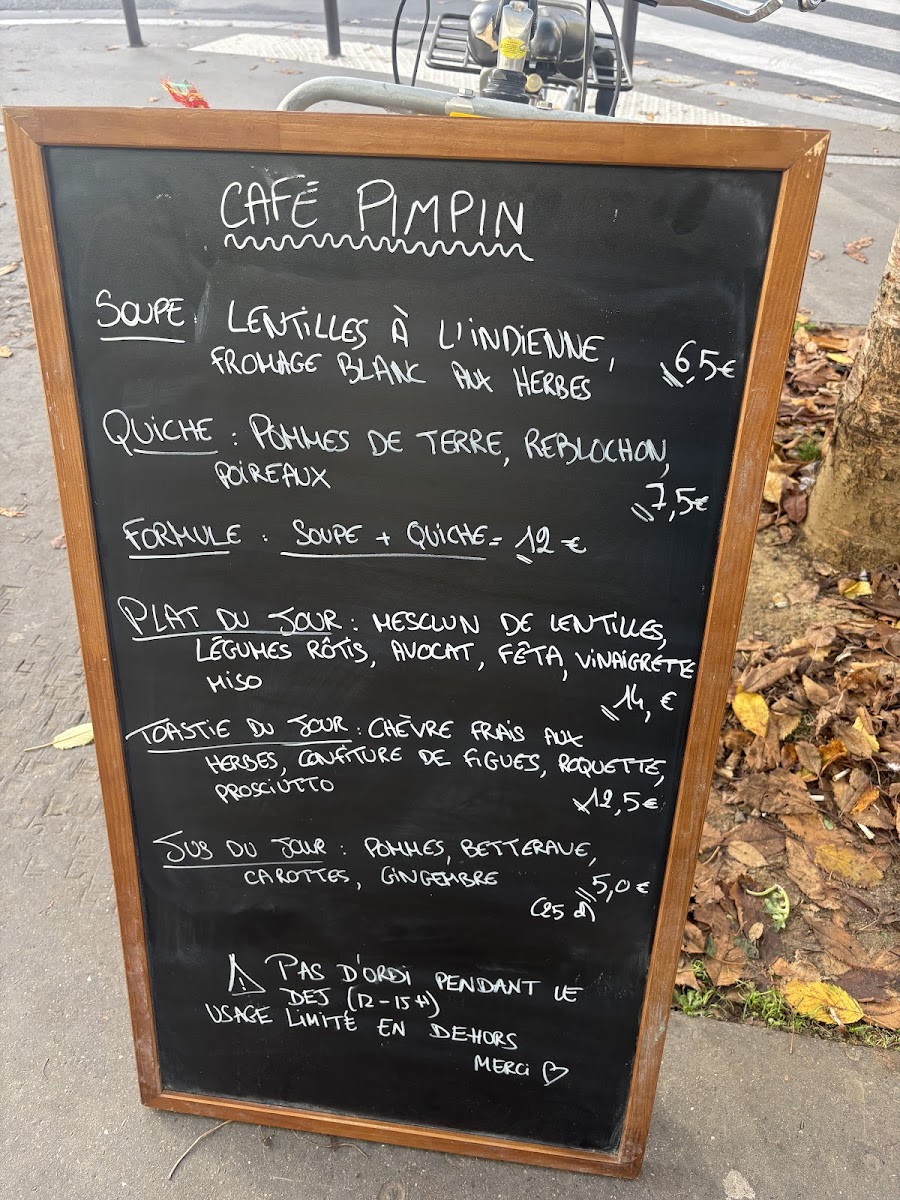 CAFÉ PIMPIN
SOUPE : LENTILLES À L'INDIENNE,
FROMAGE BLANC AUX HERBES 6,5€
QUICHE : POMMES DE TERRE, REBLOCHON,
POIREAUX
7,5€
FORMULE : SOUPE + QUICHE = 12 €
PLAT DU JOUR : MESCLUN DE LENTILLES,
LÉGUMES RÔTIS, AVOCAT, FÊTA, VINAIGRETTE
MISO
14, €
TOASTIE DU JOUR : CHÈVRE FRAIS AUX
HERBES, CONFITURE DE FIGUES, ROQUETTE,
PROSCIUTTO 12,5€
JUS DU JOUR : POMMES, BETTERAVE,
CAROTTES, GINGEMBRE 5,0€
(25 cl)
⚠ PAS D'ORDI PENDANT LE
DEJ (12-15H)
USAGE LIMITÉ EN DEHORS
MERCI ♡